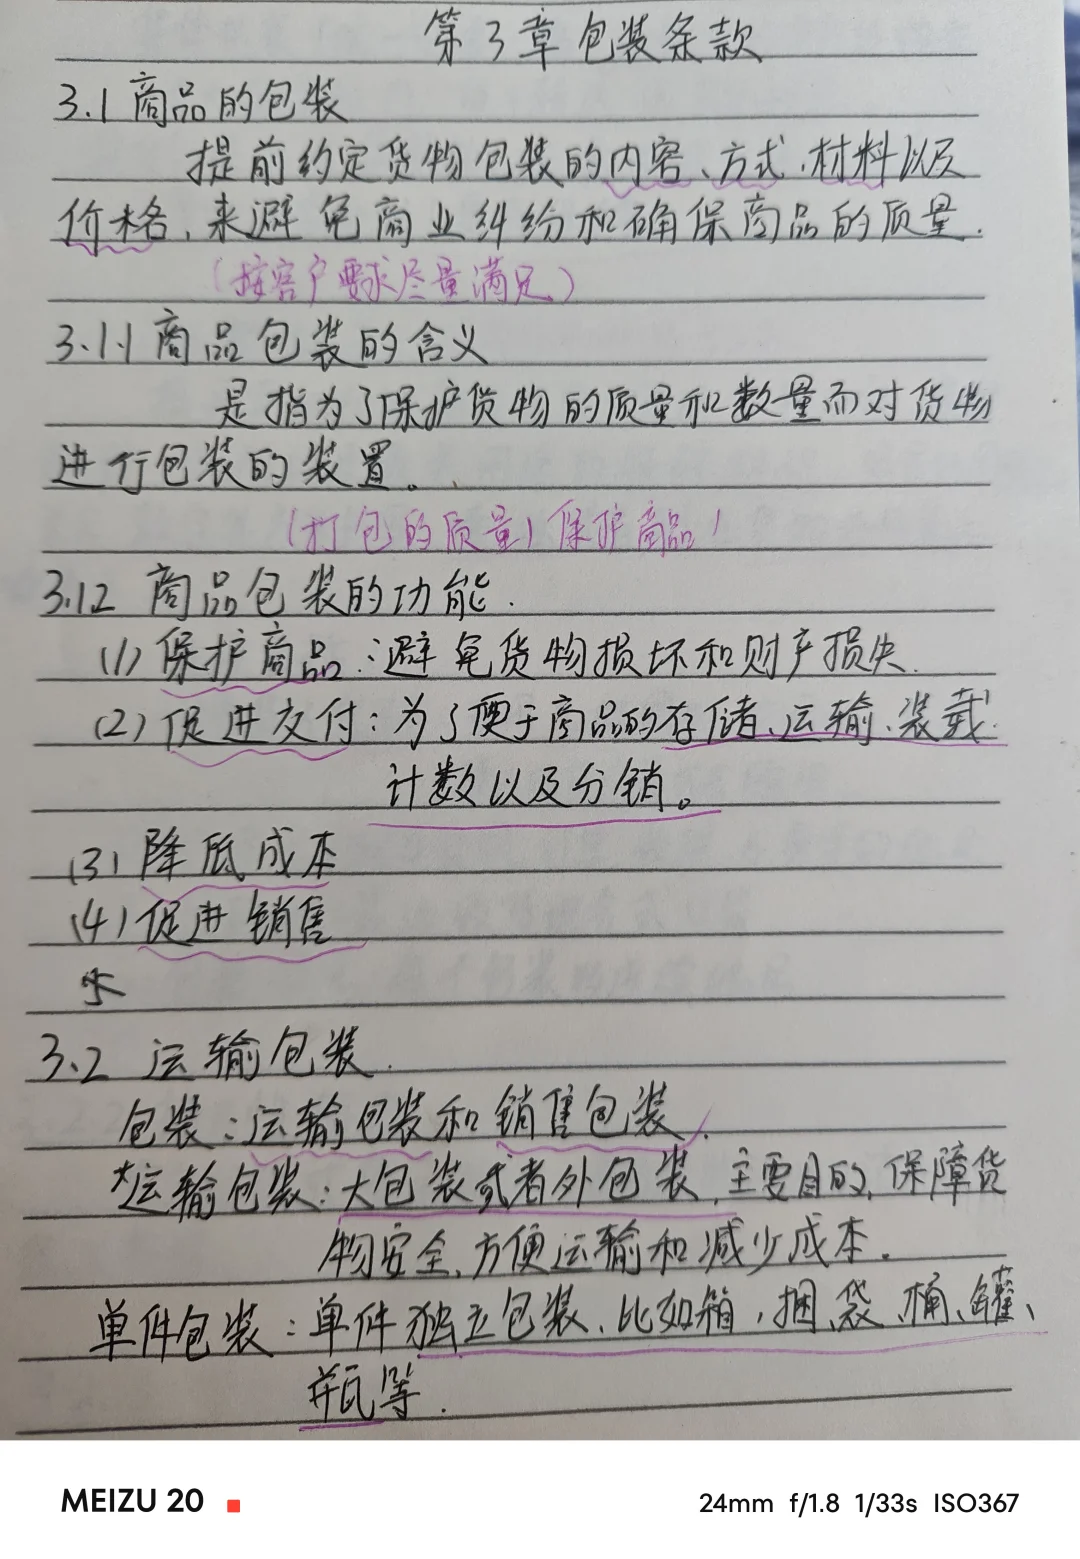 第3章包装条款
3.1商品的包装
提前约定货物包装的内容、方式、材料以及
价格、来避免商业纠纷和确保商品的质量.
(按客户要求尽量满足)
3.1.1商品包装的含义
是指为了保护货物的质量和数量而对货物
进行包装的装置。
(打包的质量)保护商品)
3.12 商品包装的功能.
(1)保护商品:避免货物损坏和财产损失.
(2)促进交付:为了便于商品的存储、运输、装载.
计数以及分销。
(3)降低成本
(4)促进销售
3.2 运输包装.
包装:运输包装和销售包装.
*运输包装:大包装或者外包装,主要目的,保障货
物安全、方便运输和减少成本.
单件包装:单件独立包装、比如箱,捆、袋、桶、罐、
瓶等.
MEIZU 20
24mm f/1.8 1/33s ISO367